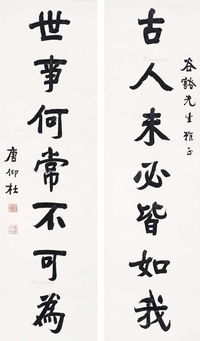 谷豁先生雅正
古人未必皆如我
世事何常不可為
唐仰杜